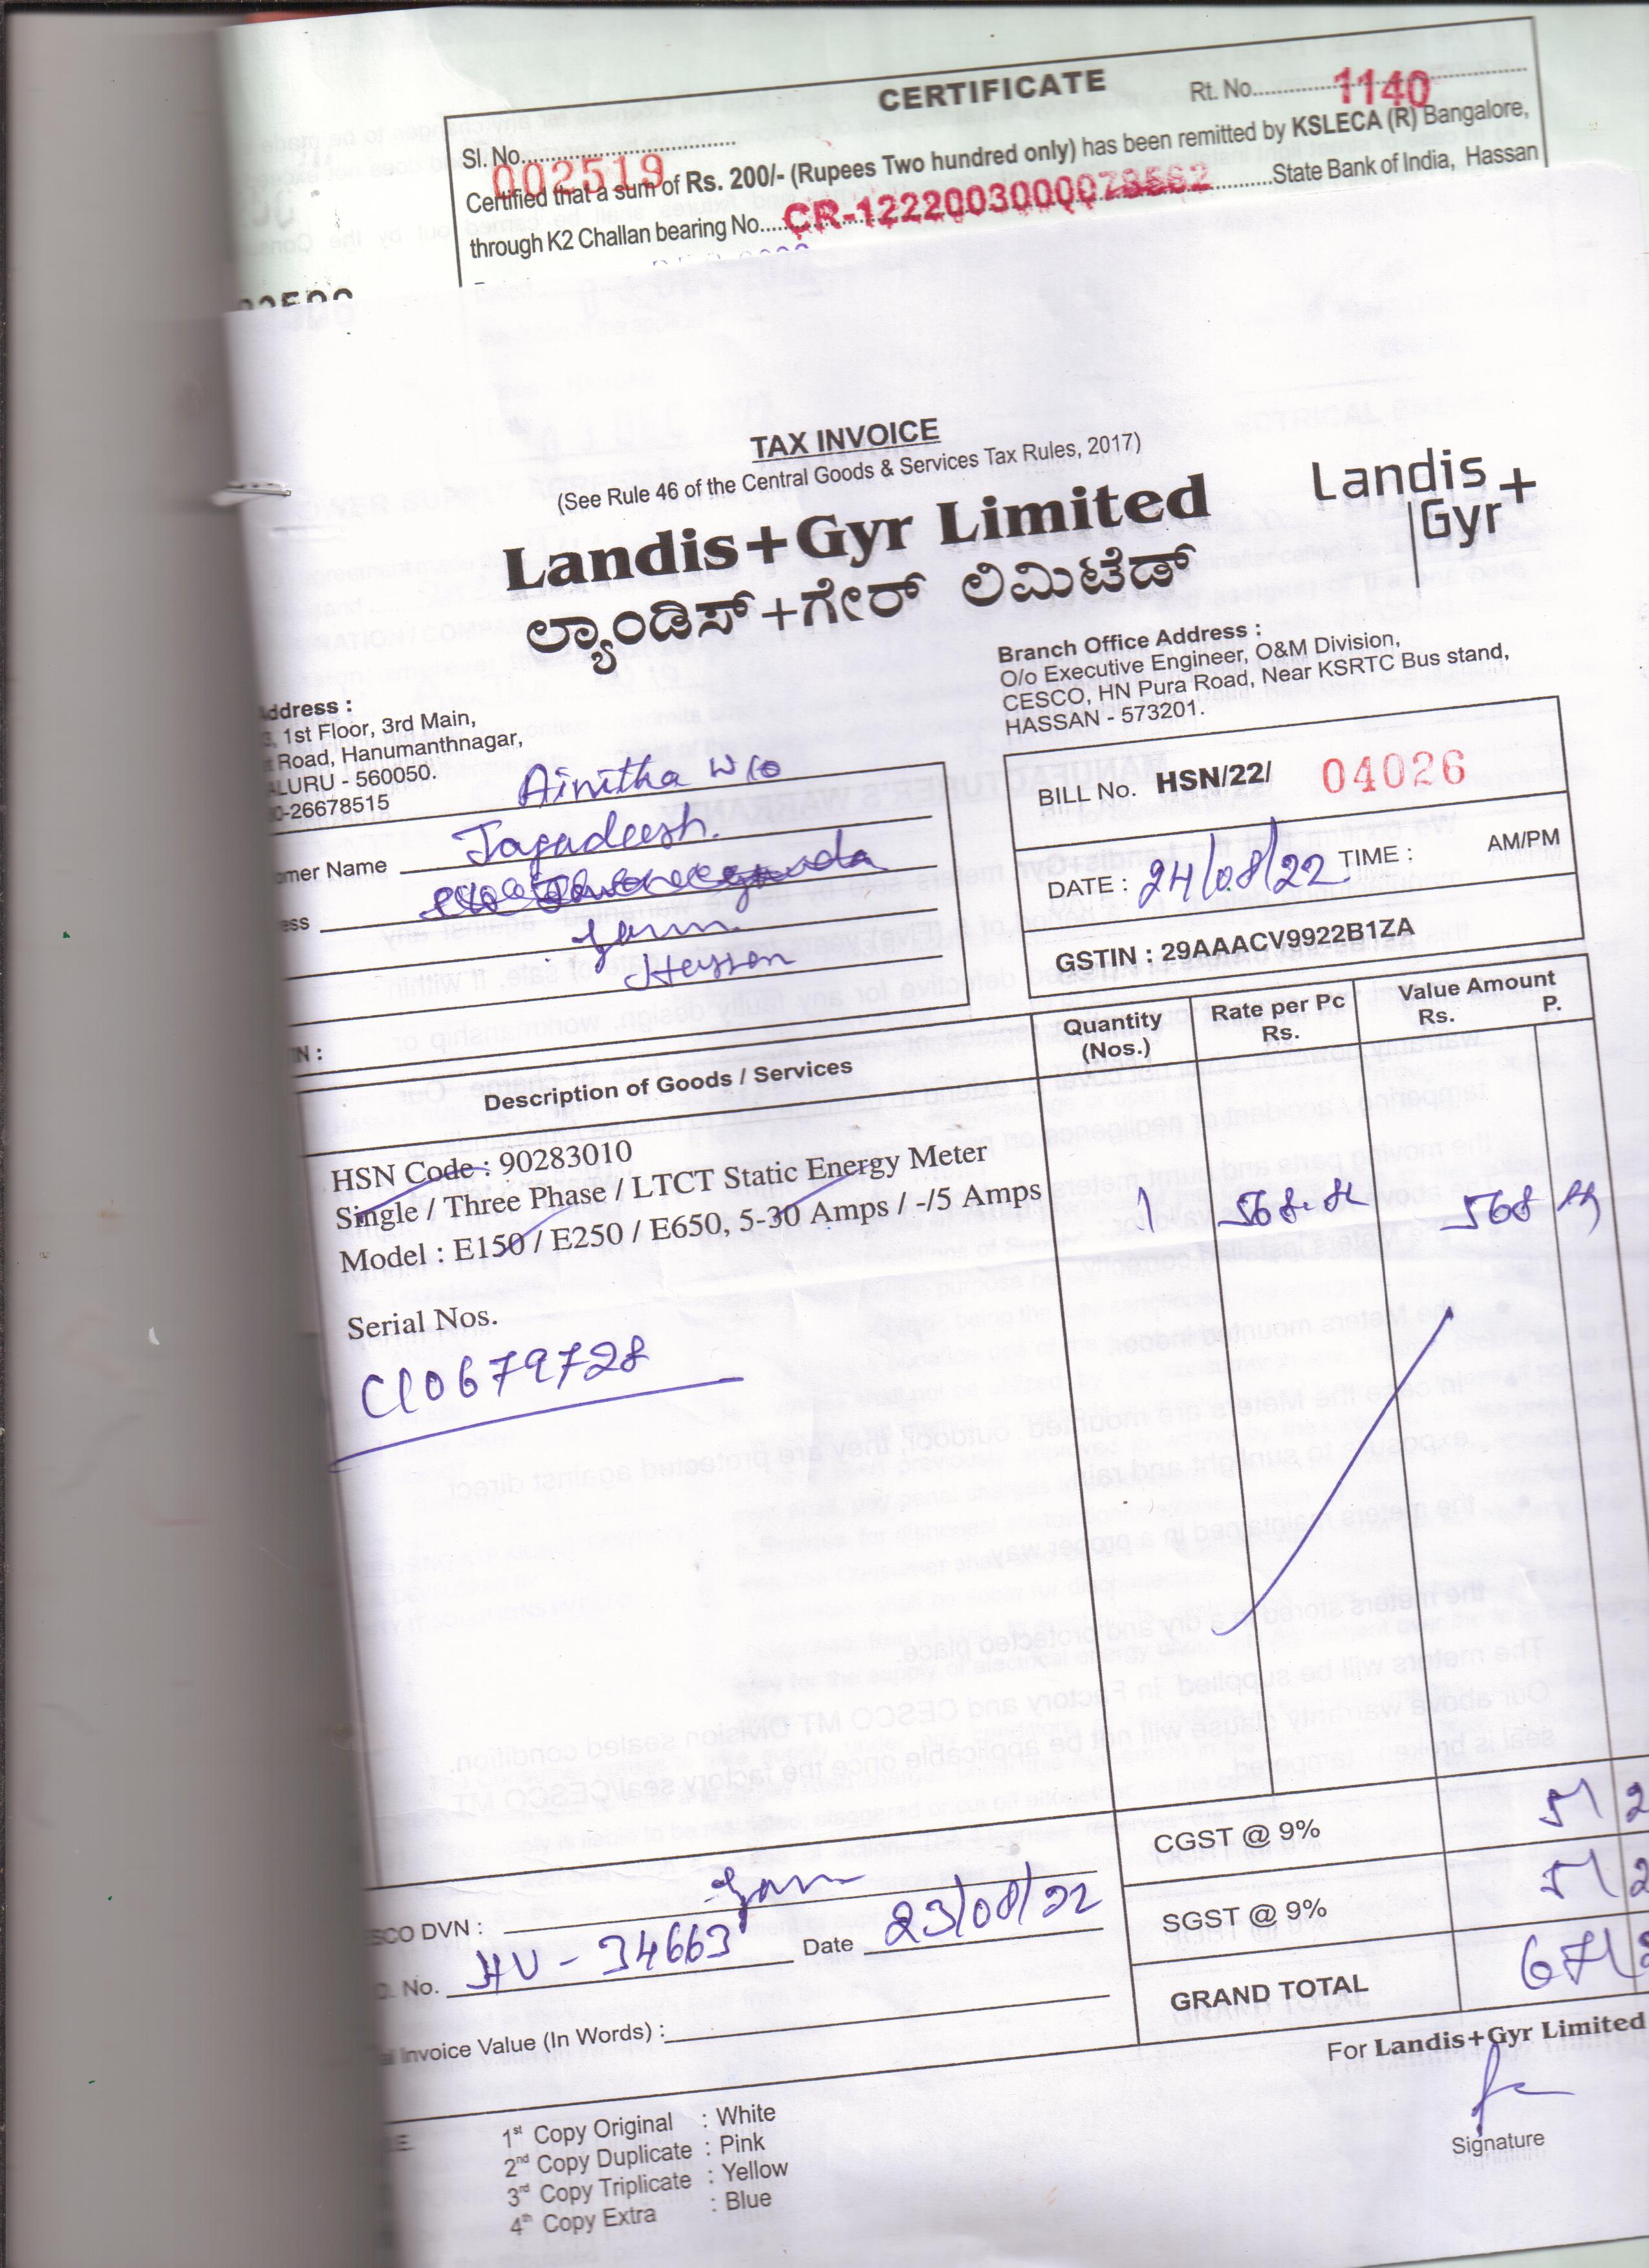 CERTIFICATE
Rt. No. 1140
Sl. No. 002519
Certified that a sum of Rs. 200/- (Rupees Two hundred only) has been remitted by KSLECA (R) Bangalore,
through K2 Challan bearing No. CR-1222003000078562 State Bank of India, Hassan
TAX INVOICE
(See Rule 46 of the Central Goods & Services Tax Rules, 2017)
Landis+Gyr Limited
Landis
Gyr+
ಲ್ಯಾಂಡಿಸ್+ಗೇರ್ ಲಿಮಿಟೆಡ್
ddress :
1st Floor, 3rd Main,
Road, Hanumanthnagar,
ALURU - 560050.
0-26678515
Branch Office Address :
O/o Executive Engineer, O&M Division,
CESCO, HN Pura Road, Near KSRTC Bus stand,
HASSAN - 573201.
W/o
omer Name Jagadeesh.
ess
Hassan
IN :
BILL No. HSN/22/ 04026
DATE : 24/08/22 TIME : AM/PM
GSTIN : 29AAACV9922B1ZA
Description of Goods / Services
Quantity (Nos.)
Rate per Pc Rs.
Value Amount
Rs. P.
HSN Code : 90283010
Single / Three Phase / LTCT Static Energy Meter
Model : E150 / E250 / E650, 5-30 Amps / -/5 Amps
1 568. 568
Serial Nos.
Cl0679728
CGST @ 9% 51 2
SGST @ 9% 51 2
GRAND TOTAL 671
SCO DVN :
No. HU - 34663 Date 23/08/22
Invoice Value (In Words) :
For Landis+Gyr Limited
Signature
1st Copy Original : White
2nd Copy Duplicate : Pink
3rd Copy Triplicate : Yellow
4th Copy Extra : Blue